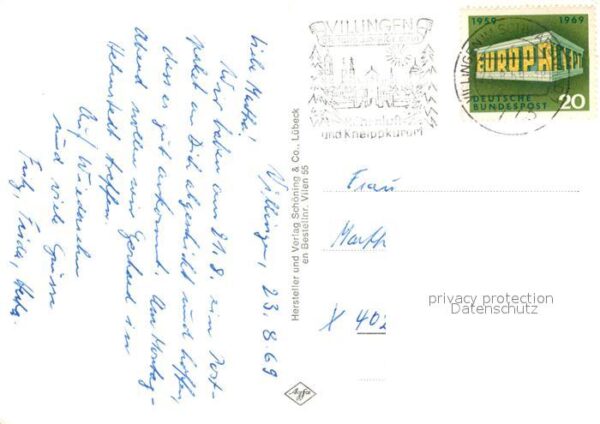 Villingen, 23.8.69
Liebe Martha!
Wir haben am 21.8. ein Post-
paket an Dich abgeschickt und hoffen,
dass es gut ankommt. Am Montag-
Abend wollen wir Gerhard in
Helmstedt treffen.
Auf Wiedersehn
und viele Grüsse
Fritz, Frida,
Hersteller und Verlag Schöning & Co., Lübeck
Bestellnr. Villen 55
Agfa
VILLINGEN
und Kneippkurort
1959 1969
EUROPA CEPT
DEUTSCHE
BUNDESPOST 20
Frau
Marth
X 402
privacy protection
Datenschutz